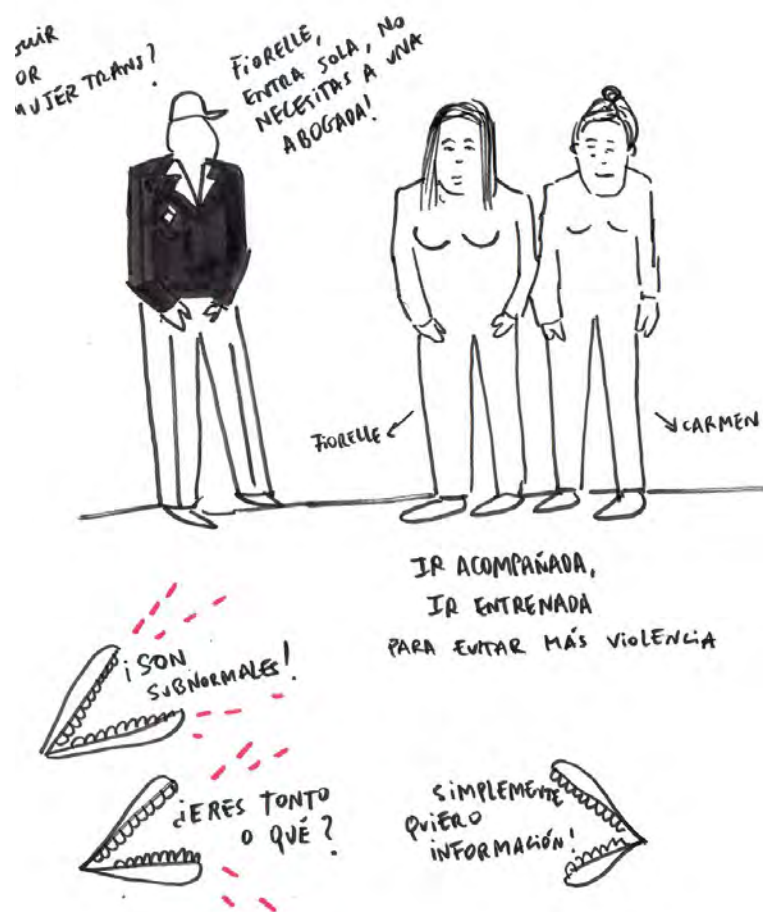 OR
TRANS?
FIORELLE,
ENTRA SOLA, NO
NECESITAS A UNA
ABOGADA!
FIORELLE
CARMEN
IR ACOMPAÑADA,
IR ENTRENADA
PARA EVITAR MÁS VIOLENCIA
¡SON
SUBNORMALES!
¿ERES TONTO
O QUÉ?
SIMPLEMENTE
QUIERO
INFORMACIÓN!